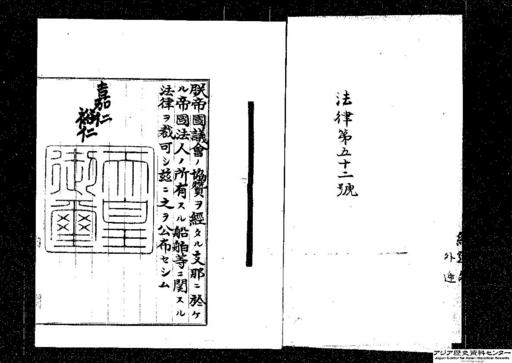 法律第五十二號
外逓
朕帝國議會ノ協贊ヲ經タル支那ニ於ケ
ル帝國法人ノ所有スル船舶等ニ関スル
法律ヲ裁可シ茲ニ之ヲ公布セシム
嘉仁
裕仁
天皇
御璽
アジア歴史資料センター
Japan Center for Asian Historical Records